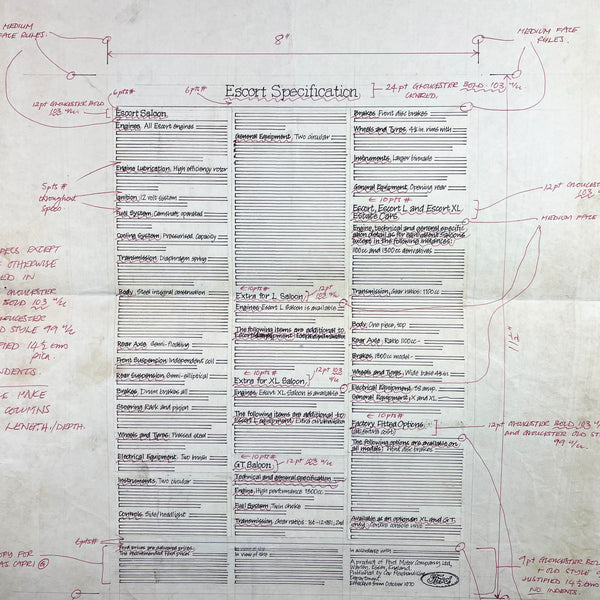 MEDIUM
FACE RULES.
8"
MEDIUM FACE
RULES.
6pts#
6pts#
Escort Specification
24 pt GLOUCESTER BOLD 103
12pt GLOUCESTER BOLD
Escort Saloon
Engines, All Escort engines
Engine Lubrication, High efficiency rotor
5pts #
throughout
specs
Ignition, 12 volt system
Fuel System, Camshaft operated
Cooling System, Pressurised, Capacity
Transmission, Diaphragm spring
Body, Steel integral construction
Rear Axle, Semi-floating
Front Suspension, Independent coil
Rear Suspension, Semi-elliptical
Brakes, Drum brakes all
Steering, Rack and pinion
Wheels and Tyres, Pressed steel
Electrical Equipment, Two brush
Instruments, Two circular
Controls, Side/headlight
6pts#
General Equipment, Two circular
10pts #
Extra for L Saloon
12pt
Engines, Escort L Saloon is available
The following items are additional to
10pts #
Extra for XL Saloon
12pt
Engines, Escort XL Saloon is available
The following items are additional to
Escort L equipment,
10pts #
GT Saloon
12pt
Technical and general specification
Engine, High performance 1300cc
Fuel System, Twin choke
Transmission, Gear ratios:
in view of
Brakes, Front disc brakes
Wheels and Tyres, 4½ in rims with
Instruments, Larger binnacle
General Equipment, Opening rear
10 pts #
Escort, Escort L and Escort XL
Estate Cars
12pt GLOUCESTER
MEDIUM FACE
Engine, technical and general specific
ation detail as for equivalent Saloons
except in the following instances:
1100cc and 1300cc derivatives
Transmission, Gear ratios: 1100cc
Body, One piece, top
Rear Axle, Ratio 1100cc-
Brakes, 1300cc model-
Wheels and Tyres, Wide base 4½ in
Electrical Equipment, 38 amp.
General Equipment, L and XL
10pts #
Factory Fitted Options
(at extra cost)
12pt GLOUCESTER BOLD 103
AND GLOUCESTER OLD STYLE
99
The following options are available on
all models: Front disc brakes
Available as an option on XL and GT
only: Centre console unit
in accordance with
A product of Ford Motor Company Ltd,
Warley, Essex, England.
Published by Car Merchandising
Department
Effective from October 1970
Ford
11½"
SPECS EXCEPT
OTHERWISE
IN
GLOUCESTER
BOLD 103
GLOUCESTER
OLD STYLE 99
14½ ems
pica.
INDENTS.
MAKE
COLUMNS
LENGTH/DEPTH.
COPY FOR
AS CAPRI
9pt GLOUCESTER BOLD
+ OLD STYLE
JUSTIFIED 14½ ems
NO INDENTS.